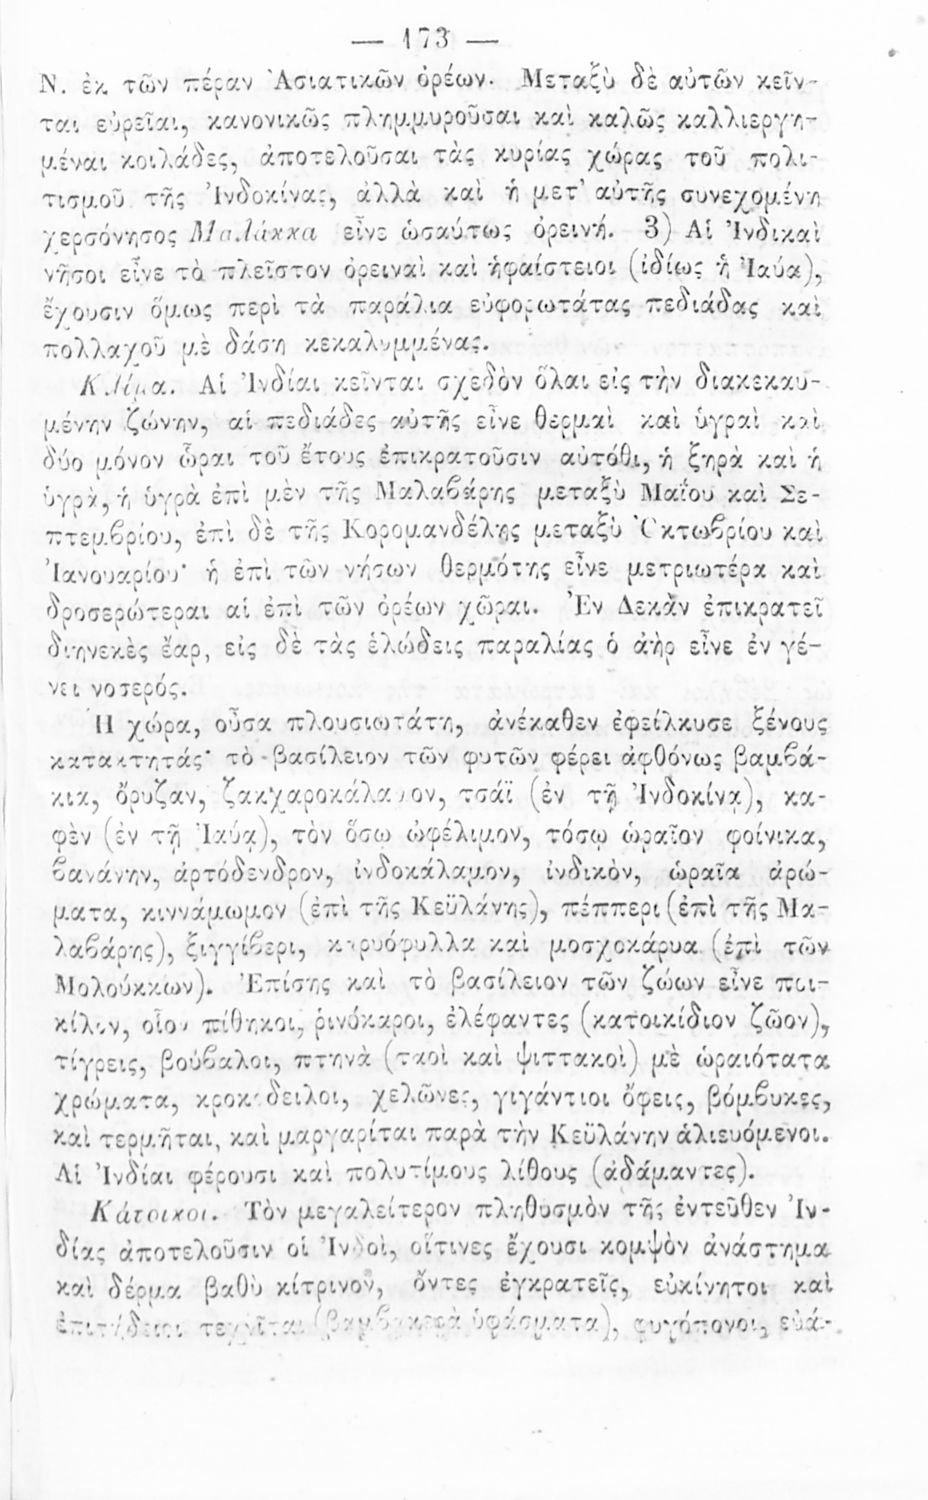 — 173 —
Ν. ἐκ τῶν πέραν Ἀσιατικῶν ὀρέων. Μεταξὺ δὲ αὐτῶν κεῖν-
ται εὐρεῖαι, κανονικῶς πλημμυροῦσαι καὶ καλῶς καλλιεργη-
μέναι κοιλάδες, ἀποτελοῦσαι τὰς κυρίας χώρας τοῦ πολι-
τισμοῦ τῆς Ἰνδοκίνας, ἀλλὰ καὶ ἡ μετ' αὐτῆς συνεχομένη
χερσόνησος Μαλάκκα εἶνε ὡσαύτως ὀρεινή. 3) Αἱ Ἰνδικαὶ
νῆσοι εἶνε τὸ πλεῖστον ὀρειναὶ καὶ ἡφαίστειοι (ἰδίως ἡ Ἰαύα),
ἔχουσιν ὅμως περὶ τὰ παράλια εὐφορωτάτας πεδιάδας καὶ
πολλαχοῦ μὲ δάση κεκαλυμμένας.
Κλίμα. Αἱ Ἰνδίαι κεῖνται σχεδὸν ὅλαι εἰς τὴν διακεκαυ-
μένην ζώνην, αἱ πεδιάδες αὐτῆς εἶνε θερμαὶ καὶ ὑγραὶ καὶ
δύο μόνον ὧραι τοῦ ἔτους ἐπικρατοῦσιν αὐτόθι, ἡ ξηρὰ καὶ ἡ
ὑγρὰ, ἡ ὑγρὰ ἐπὶ μὲν τῆς Μαλαβάρης μεταξὺ Μαΐου καὶ Σε-
πτεμβρίου, ἐπὶ δὲ τῆς Κορομανδέλης μεταξὺ Ὀκτωβρίου καὶ
Ἰανουαρίου· ἡ ἐπὶ τῶν νήσων θερμότης εἶνε μετριωτέρα καὶ
δροσερώτεραι αἱ ἐπὶ τῶν ὀρέων χῶραι. Ἐν Δεκὰν ἐπικρατεῖ
διηνεκὲς ἔαρ, εἰς δὲ τὰς ἑλώδεις παραλίας ὁ ἀὴρ εἶνε ἐν γέ-
νει νοσερός.
Ἡ χώρα, οὖσα πλουσιωτάτη, ἀνέκαθεν ἐφείλκυσε ξένους
κατακτητάς· τὸ βασίλειον τῶν φυτῶν φέρει ἀφθόνως βαμβά-
κια, ὄρυζαν, ζακχαροκάλαμον, τσάϊ (ἐν τῇ Ἰνδοκίνᾳ), κα-
φὲν (ἐν τῇ Ἰαύᾳ), τὸν ὅσῳ ὠφέλιμον, τόσῳ ὡραῖον φοίνικα,
βανάνην, ἀρτόδενδρον, ἰνδοκάλαμον, ἰνδικὸν, ὡραῖα ἀρώ-
ματα, κιννάμωμον (ἐπὶ τῆς Κεϋλάνης), πέππερι (ἐπὶ τῆς Μα-
λαβάρης), ξιγγίβερι, καρυόφυλλα καὶ μοσχοκάρυα (ἐπὶ τῶν
Μολούκκων). Ἐπίσης καὶ τὸ βασίλειον τῶν ζώων εἶνε ποι-
κίλον, οἷον πίθηκοι, ῥινόκεροι, ἐλέφαντες (κατοικίδιον ζῶον),
τίγρεις, βούβαλοι, πτηνὰ (ταοὶ καὶ ψιττακοὶ) μὲ ὡραιότατα
χρώματα, κροκόδειλοι, χελῶνες, γιγάντιοι ὄφεις, βόμβυκες,
καὶ τερμῆται, καὶ μαργαρίται παρὰ τὴν Κεϋλάνην ἁλιευόμενοι.
Αἱ Ἰνδίαι φέρουσι καὶ πολυτίμους λίθους (ἀδάμαντες).
Κάτοικοι. Τὸν μεγαλείτερον πληθυσμὸν τῆς ἐντεῦθεν Ἰν-
δίας ἀποτελοῦσιν οἱ Ἰνδοὶ, οἵτινες ἔχουσι κομψὸν ἀνάστημα
καὶ δέρμα βαθὺ κίτρινον, ὄντες ἐγκρατεῖς, εὐκίνητοι καὶ
ἐπιτήδειοι τεχνῖται (βαμβακερὰ ὑφάσματα), φυγόπονοι, εὐά-